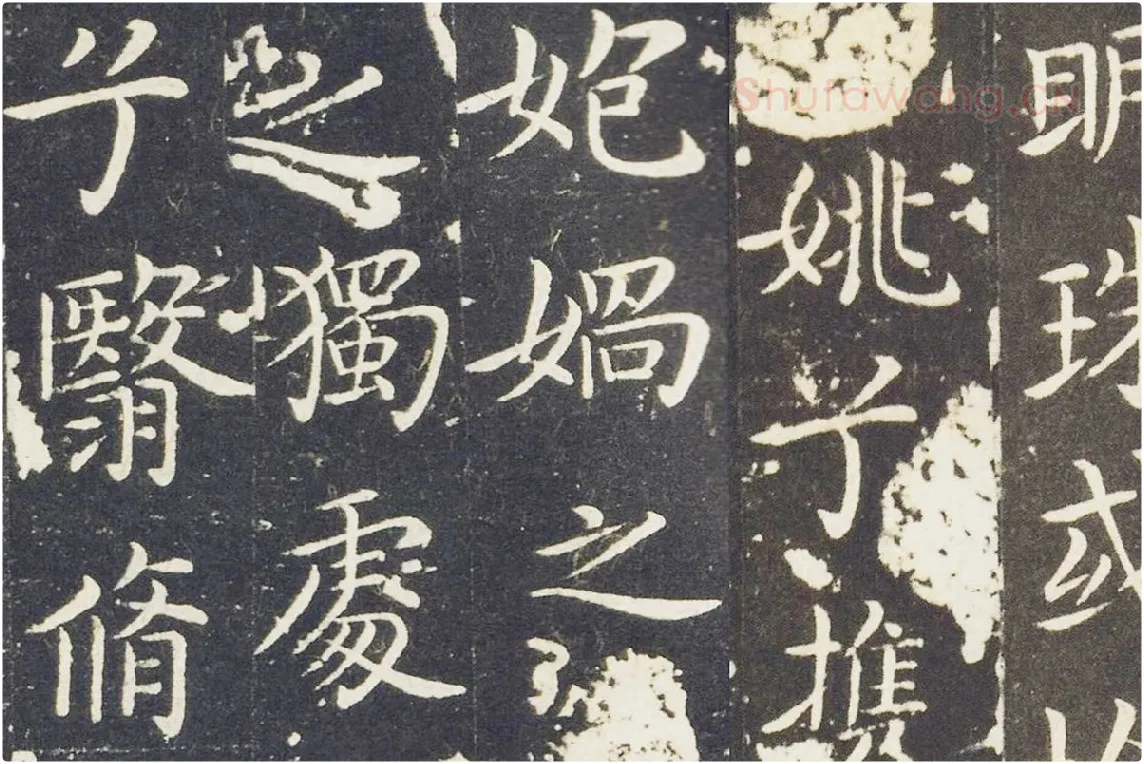 明珠或
姚兮携
㚿媧之
之獨處
兮翳脩
Shufawang.CN